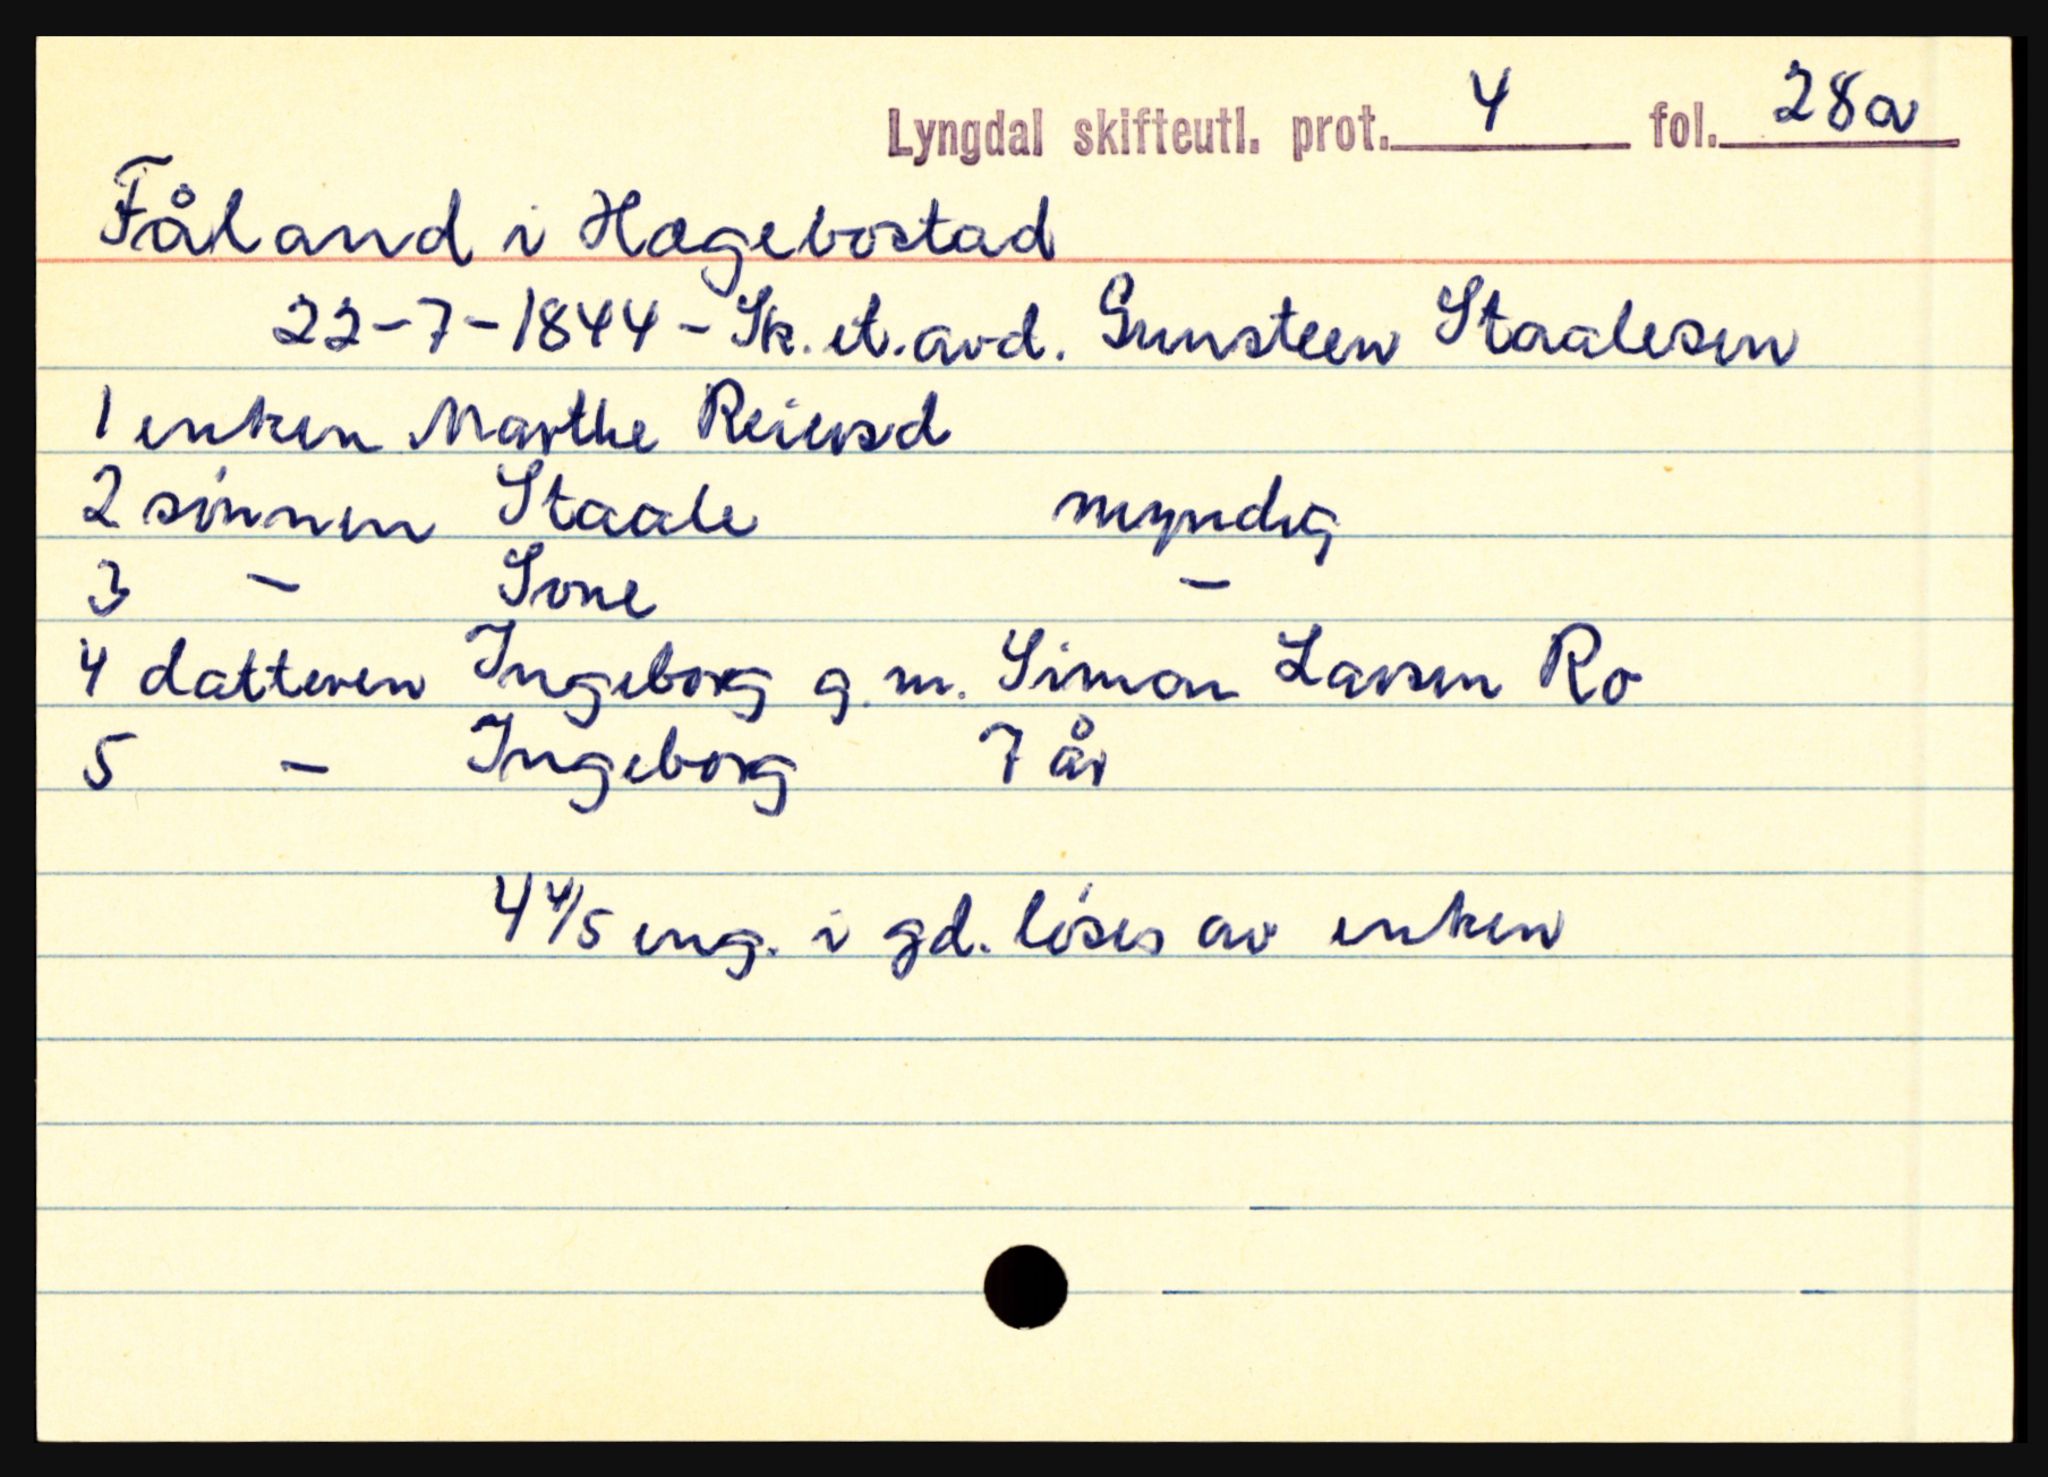 Lyngdal skifteutl. prot. 4 fol. 28a
Fåland i Hægebostad
22-7-1844 - Sk. et. avd. Gunsteen Staalesen
1 enken Marthe Reiersd
2 sönnen Staale myndig
3 - Sone -
4 datteren Ingeborg g. m. Simon Larsen Ro
5 - Ingeborg 7 år
4 4/5 eng. i gd. löses av enken